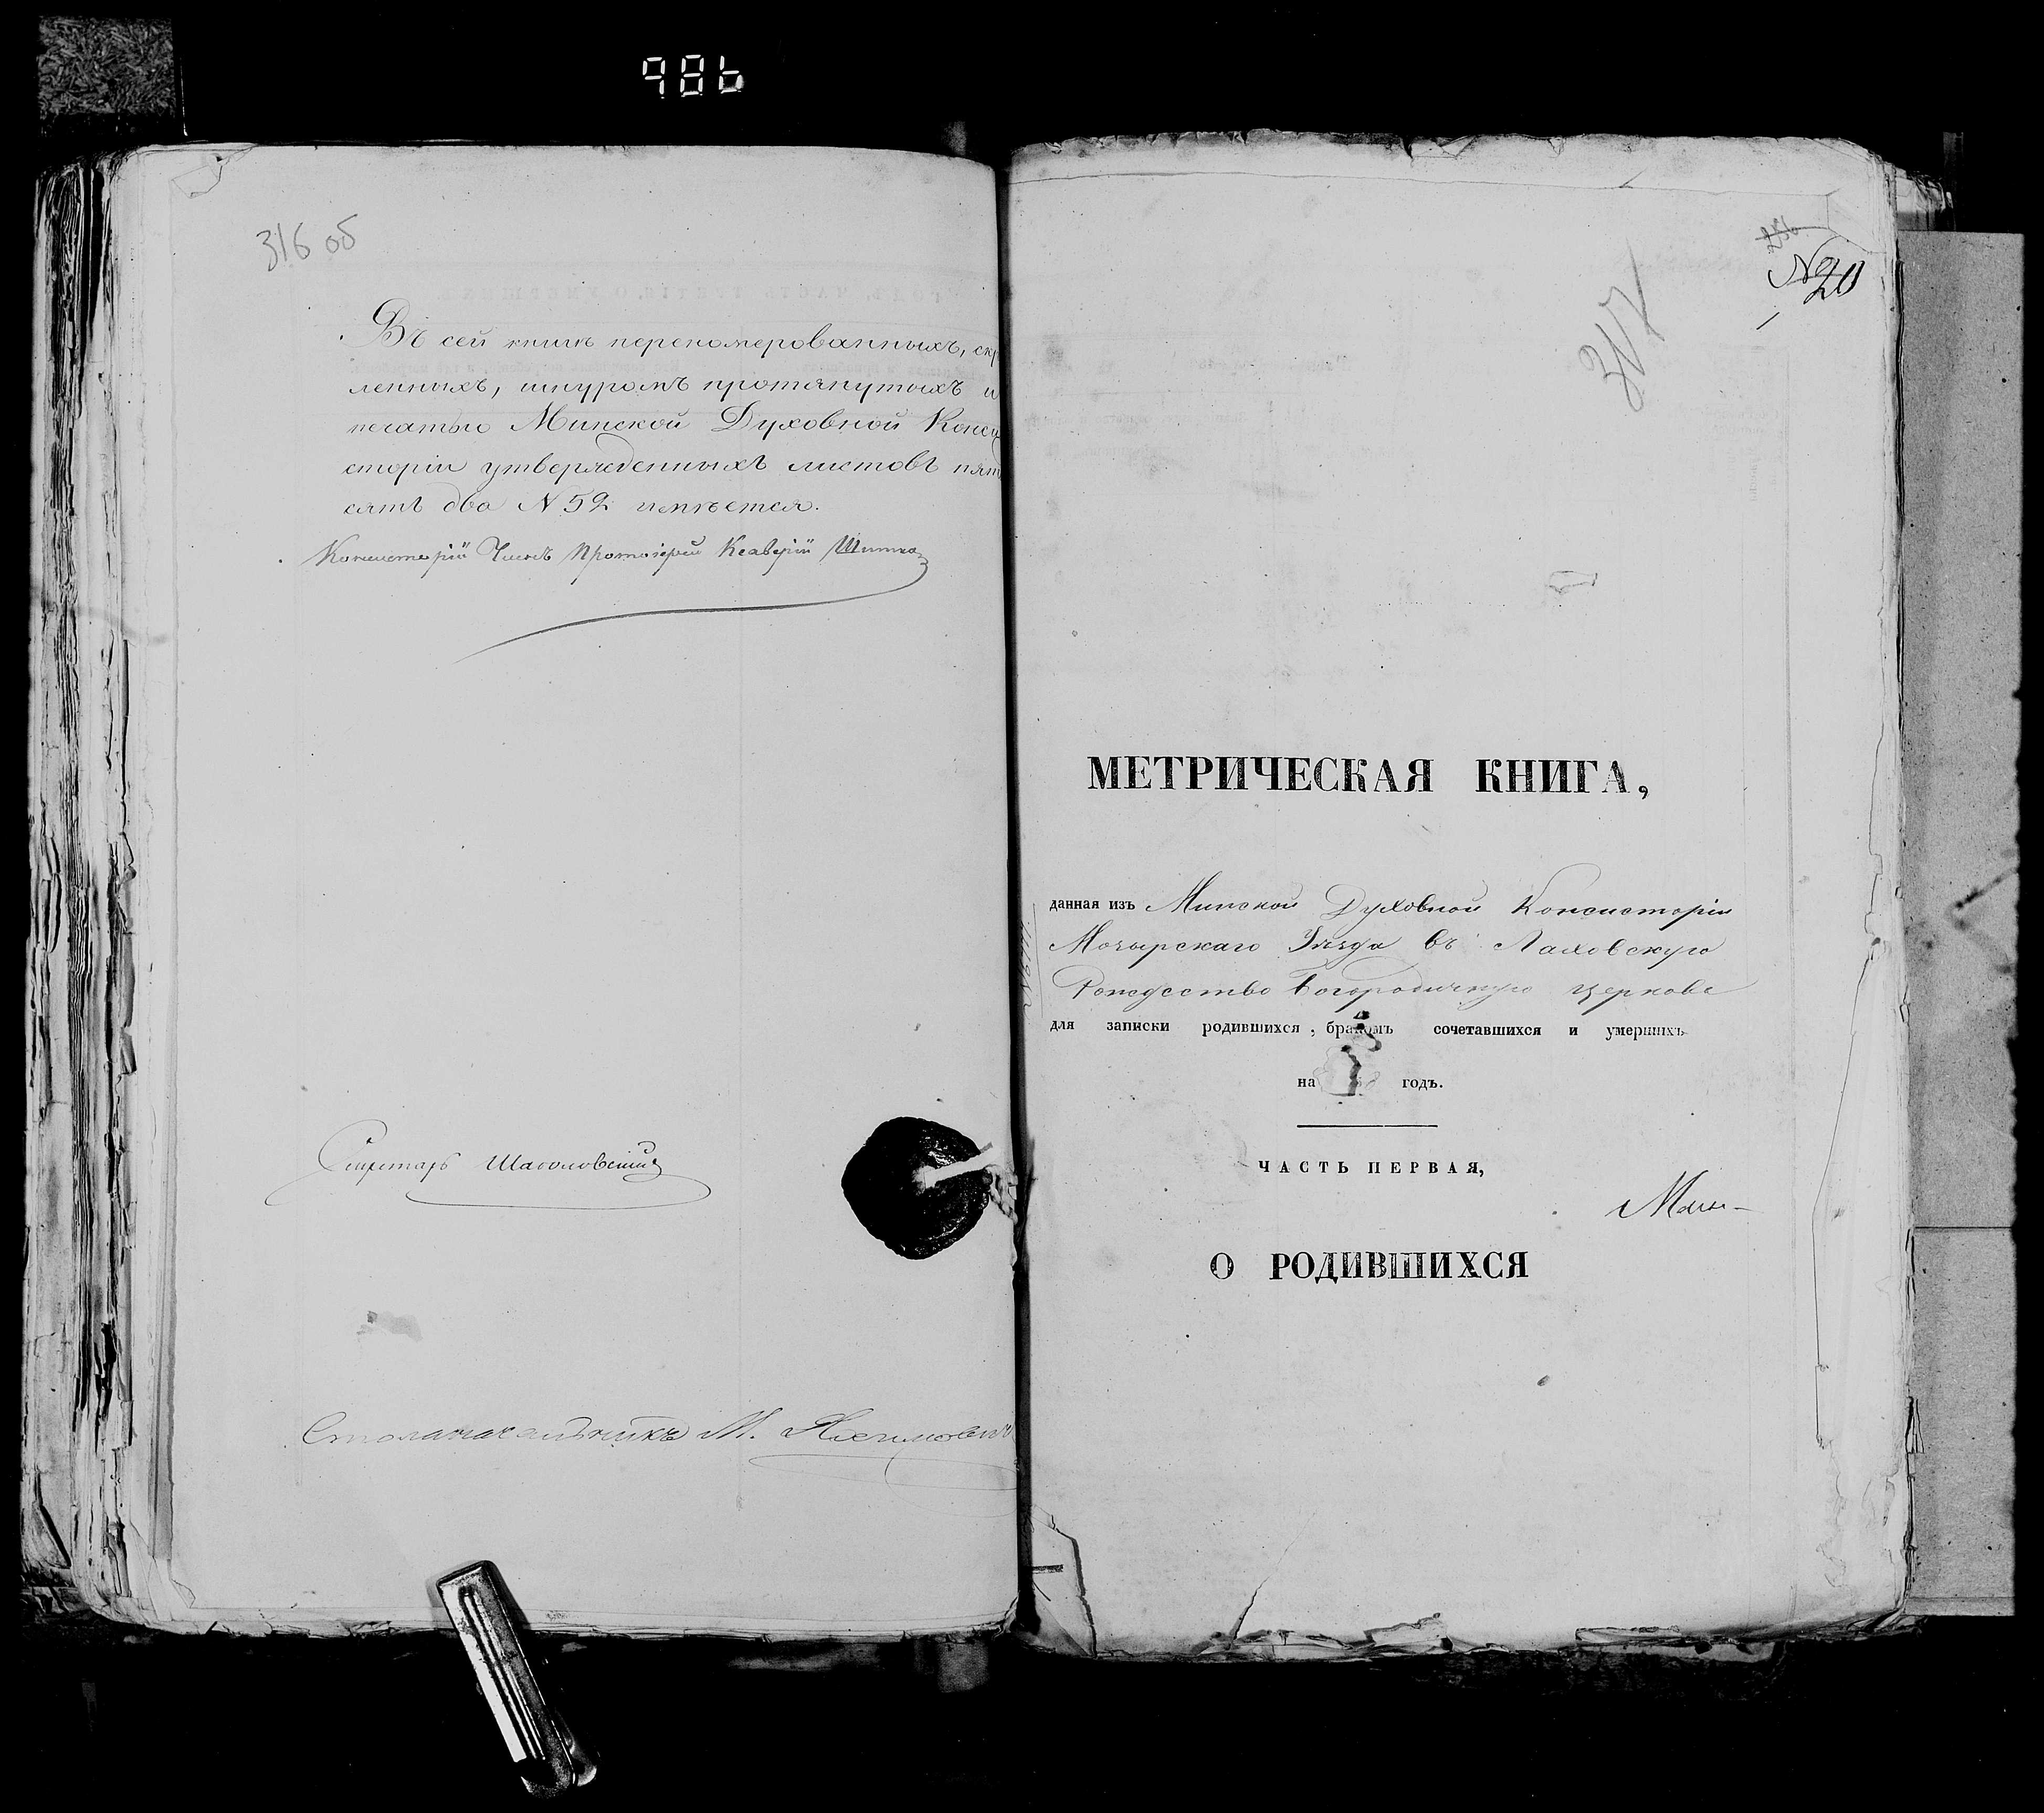 986
316 об
Въ сей книгѣ переномерованныхъ, скр
ленныхъ, шнуромъ протянутыхъ и
печатью Минской Духовной Конси
сторіи утвержденныхъ листовъ пять
сятъ два N 52 имѣется.
Консисторіи Членъ Протоіерей Ксаверій
Секретарь
Столоначальникъ М.
N 20
317
МЕТРИЧЕСКАЯ КНИГА,
данная изъ Минской Духовной Консисторіи
Мозырскаго Уѣзда въ Лаховскую
Рождество Богородичную церковь
для записки родившихся, бракомъ сочетавшихся и умершихъ
на годъ.
ЧАСТЬ ПЕРВАЯ,
Мин-
О РОДИВШИХСЯ